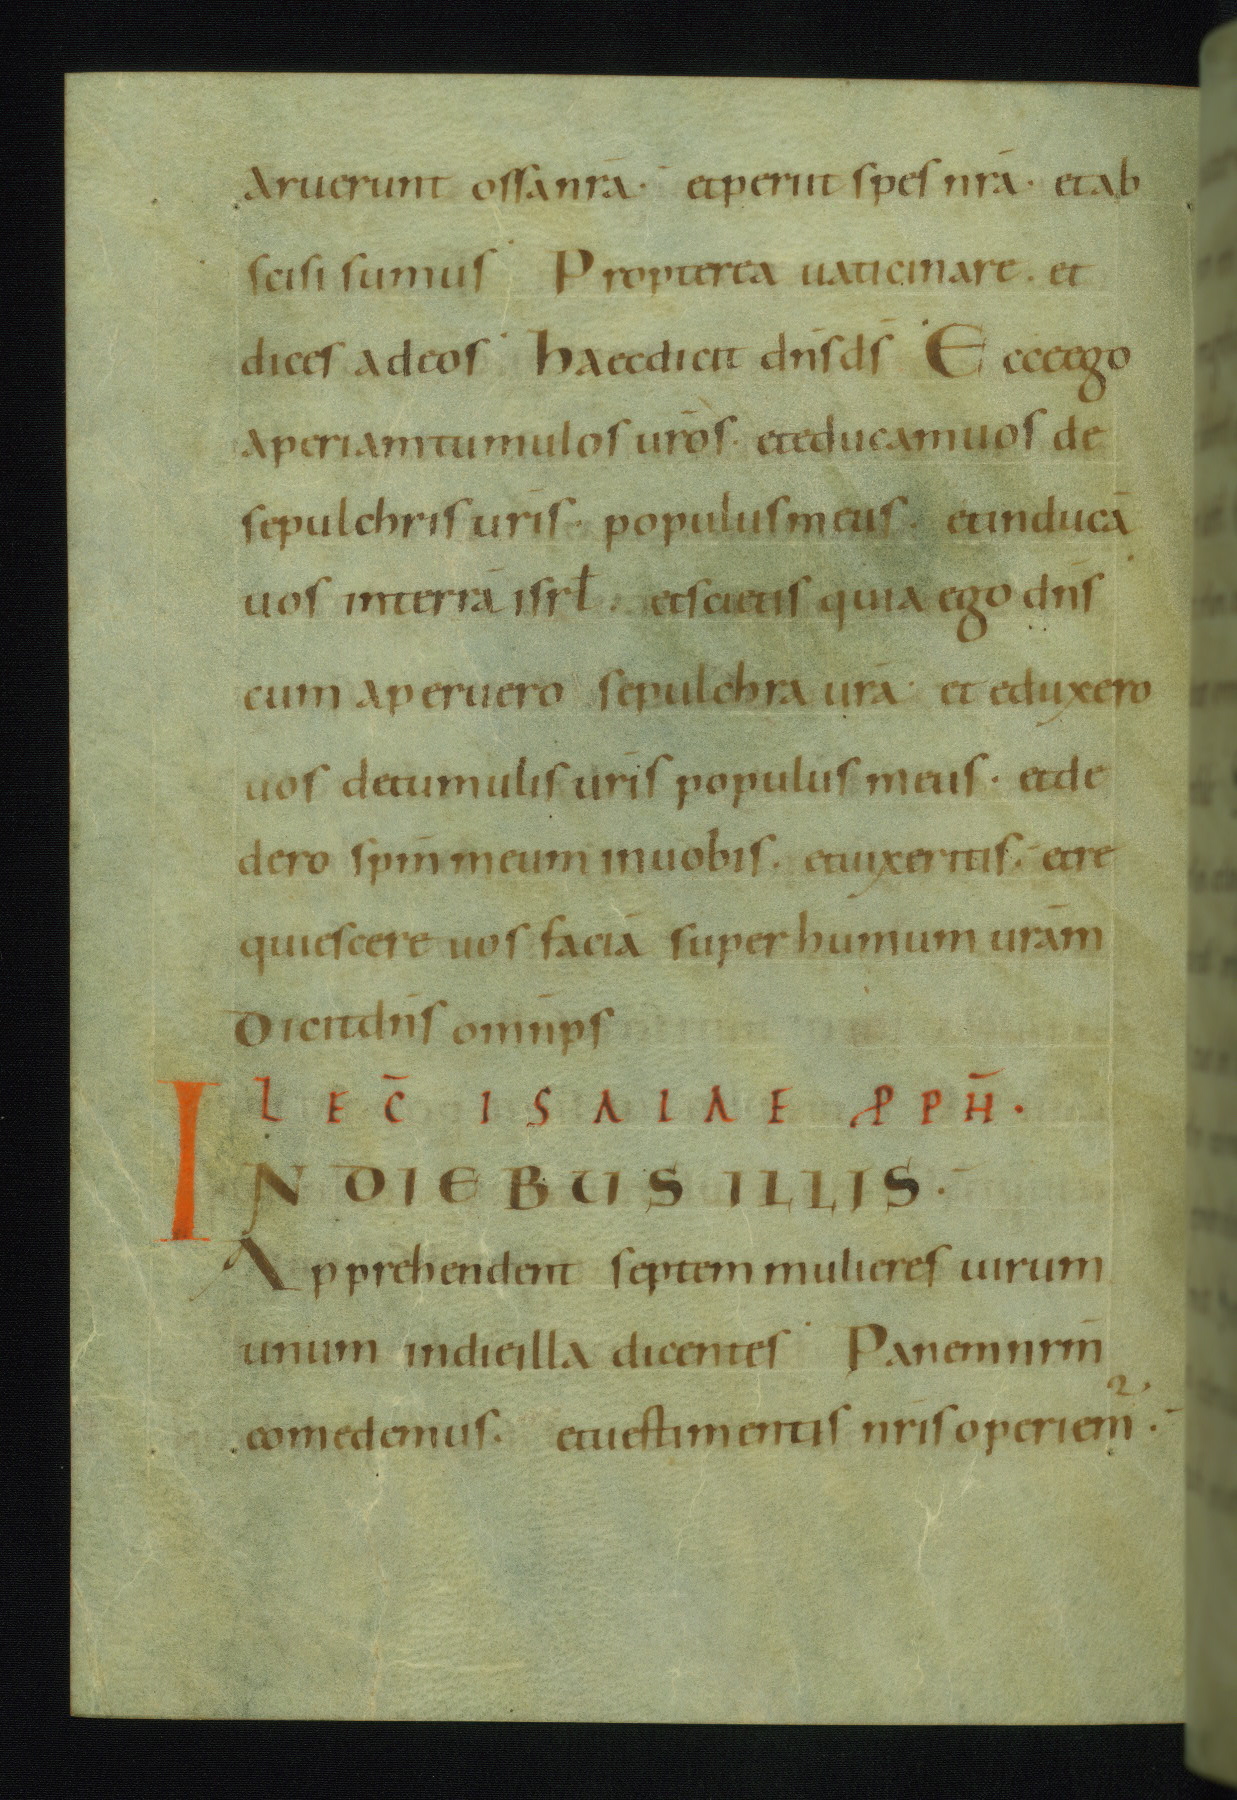 Aruerunt ossa nrā · et periit spes nrā · et ab
scisi sumus · Propterea uaticinare . et
dices ad eos · haec dicit dn̄s ds̄ · Ecce ego
aperiam tumulos ur̄os · et educam uos de
sepulchris ur̄is · populus meus · et inducā
uos in terrā isrƚ . et scietis quia ego dn̄s
cum aperuero sepulchra urā · et eduxero
uos de tumulis ur̄is populus meus · et de
dero spm̄ meum in uobis . et uixeritis · et re
quiescere uos faciā super humum urām
Dicit dn̄s omnīps
LEC̄ ISAIAE PPH̄ ·
IN DIEBUS ILLIS ·
Apprehendent septem mulieres uirum
unum in die illa dicentes · Panem nrm̄
comedemus · et uestimentis nr̄is operiem² ·